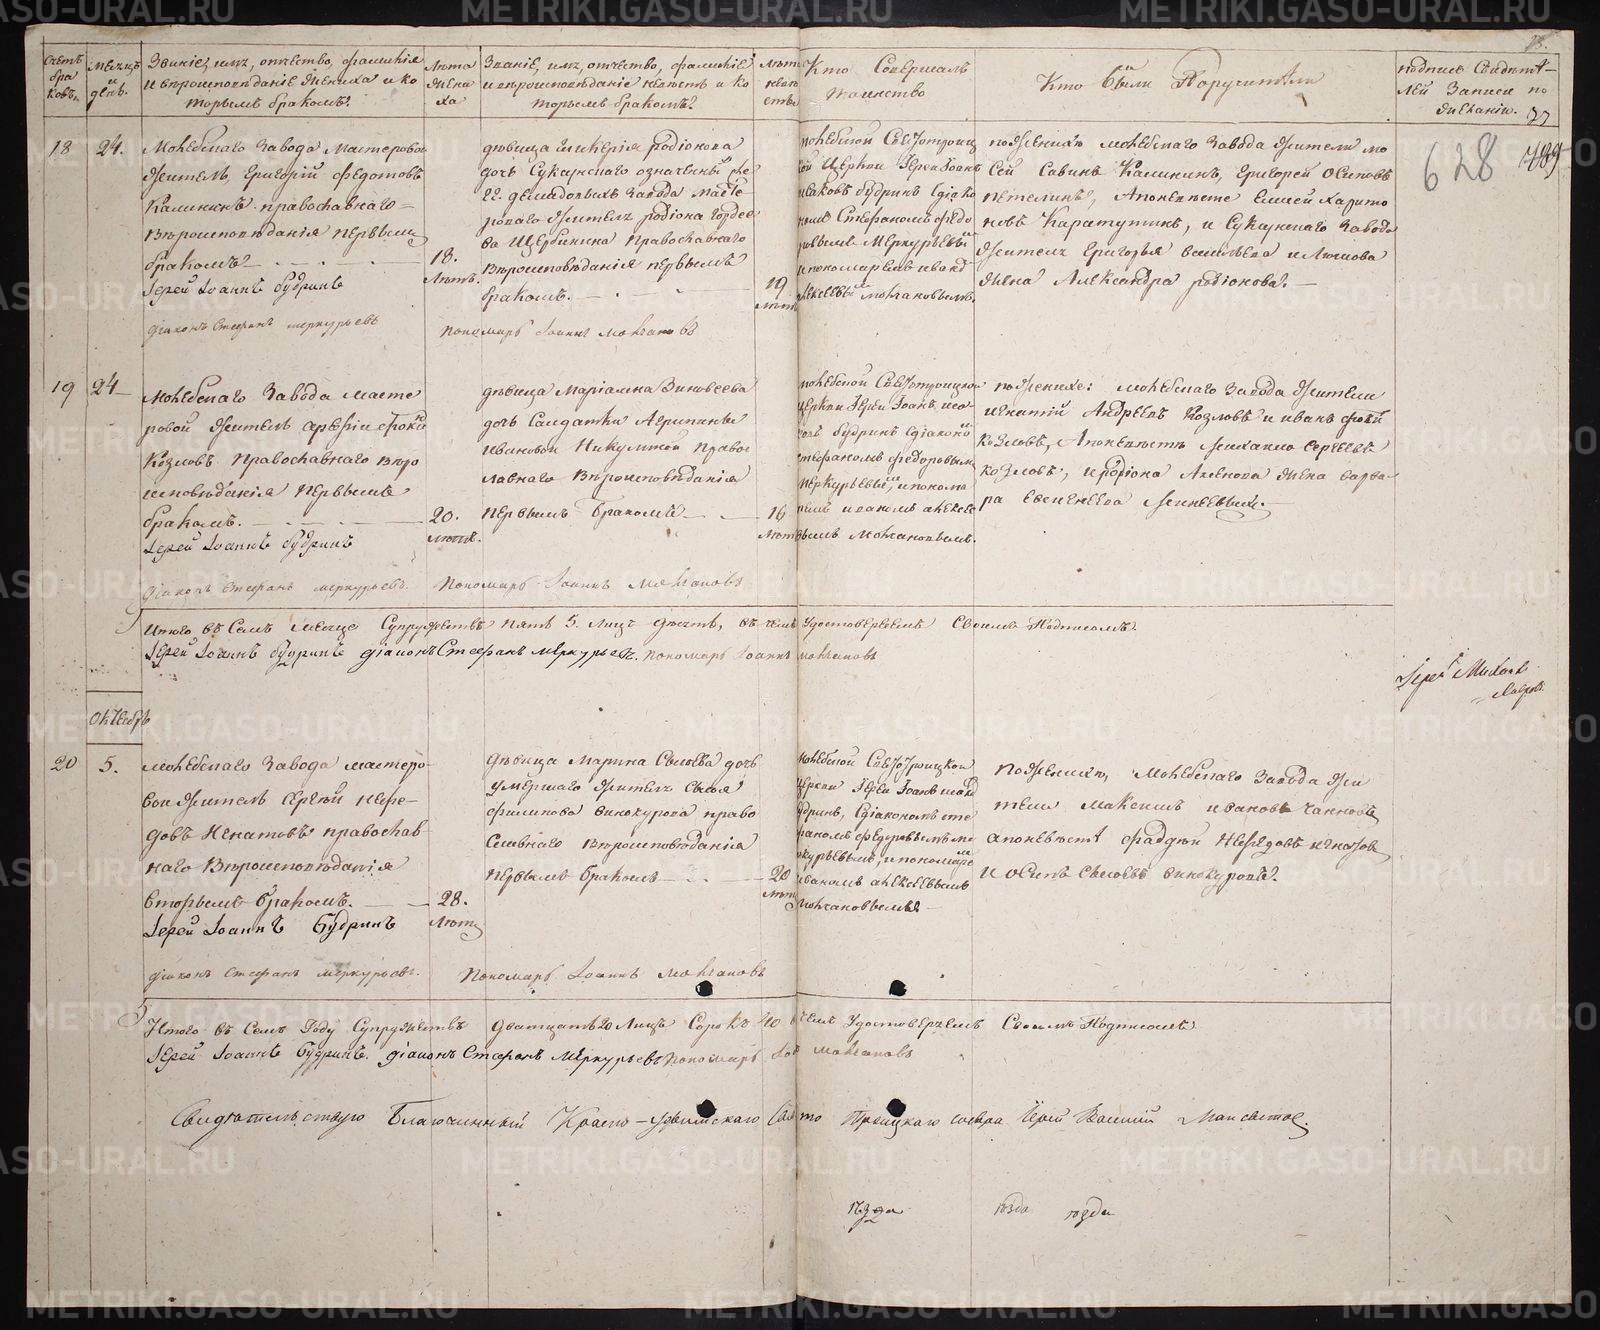 Счетъ браковъ.
Месяцъ и день.
Званіе, имя, отчество, фамилія
и вероисповѣданіе жениха и ко
торымъ бракомъ?
Лѣта
жени
ха
Званіе, имя, отчество, фамилія
и вѣроисповѣданіе невѣсты и ко
торымъ бракомъ?
Лѣта
невѣ
сты
Кто Совершалъ
таинство
Кто были Поручители
подпись Свидѣте-
лей Записи по
желанію.
77
628
18
24.
Молебскаго Завода Мастеровой
житель, Григорій Федотовъ
Калининъ православнаго
Вѣроисповѣданія первымъ
бракомъ
Іерей Іоаннъ Будринъ
діаконъ Стефанъ меркурьевъ
18.
Лѣтъ.
дѣвица Гликерія родіонова
дочь Суксунскаго
Демидовыхъ Завода масте
роваго жителя родіона Гордее
ва Щербинина Православнаго
Вѣроисповѣданія первымъ
бракомъ.
Пономарь Іоаннъ Молчановъ
19
лѣтъ
молебской Святотроиц
кой Церкви Іерей Іоаннъ
Іаковъ Будринъ Сдіако
номъ Стефаномъ Федо
ровымъ Меркурьевымъ
и пономаремъ иваномъ
алексеевымъ молчановымъ.
поженихѣ молебскаго Завода жители мо
сей Савинъ Калининъ, Григорей Осиповъ
Петелинъ, Апоневесте Елисей харито
новъ Каратугинъ, и Суксунскаго Завода
жителя Григорья
жена Александра родіонова.
19
24
молебскаго Завода масте
ровой житель
Козловъ Православнаго Веро
исповѣданія первымъ
бракомъ.
Іерей Іоаннъ Будринъ
діаконъ Стефанъ меркурьевъ.
20.
лѣтъ.
дѣвица Маріамна Зиновеева
дочь Салдатки Агрипины
Ивановой Никулиной Право
лавнаго Вѣроисповѣданія
первымъ бракомъ
Пономарь Іоаннъ Молчановъ
16
лѣтъ
молебской Святотроицкой
Церкви Іерей Іоаннъ иоа-
ковъ будринъ Сдіакономъ
стефаномъ федоровымъ
меркурьевымъ, и понома
ремъ иваномъ алексее
вымъ молчановымъ.
поженихе: молебскаго Завода жители
игнатій Андреевъ Козловъ и иванъ
козловъ, Апоневѣстѣ Сергеевъ
козловъ, и родіона Аксенова жена варва-
ра
Итого въ Семъ месяце Супружествъ пять 5. лицъ десять, въ чемъ Удостоверяемъ Своимъ Подписомъ.
Іерей Іоаннъ будринъ діаконъ Стефанъ меркурьевъ. пономарь Іоаннъ молчановъ
Октябрь
20
5.
молебскаго Завода мастеро-
вой житель Сергей Нефе-
довъ Игнатовъ православ-
наго Вѣроисповѣданія
вторымъ бракомъ.
Іерей Іоаннъ Будринъ
діаконъ Стефанъ меркурьевъ.
28.
Лѣтъ
дѣвица Марина Савьева дочь
умершаго жителя Савья
филипова винокурова право
славнаго вероисповѣданія
первымъ бракомъ
Пономарь Іоаннъ молчановъ
20
лѣтъ
молебской Святотроицкой
Церкви Іерей Іоаннъ
будринъ, Сдіакономъ сте
фаномъ федоровымъ ме
ркурьевымъ, и пономаремъ
иваномъ алексеевымъ
молчановымъ.
поженихе, молебскаго Завода жи
тели максимъ ивановъ
апоневѣстѣ фадей Нефедовъ игнатовъ
и осипъ Савьевъ винокуровъ.
Итого въ Семъ году Супружествъ дватцать 20 Лицъ Сорокъ 40 въ чемъ Удостоверяемъ Своимъ Подписомъ
Іерей Іоаннъ Будринъ. діаконъ Стефанъ меркурьевъ пономарь Іоаннъ молчановъ
Свидѣтельствую Благочинный Красно-уфимскаго Свято Троицкаго собора Іерей Василій
Іерей
METRIKI.GASO-URAL.RU